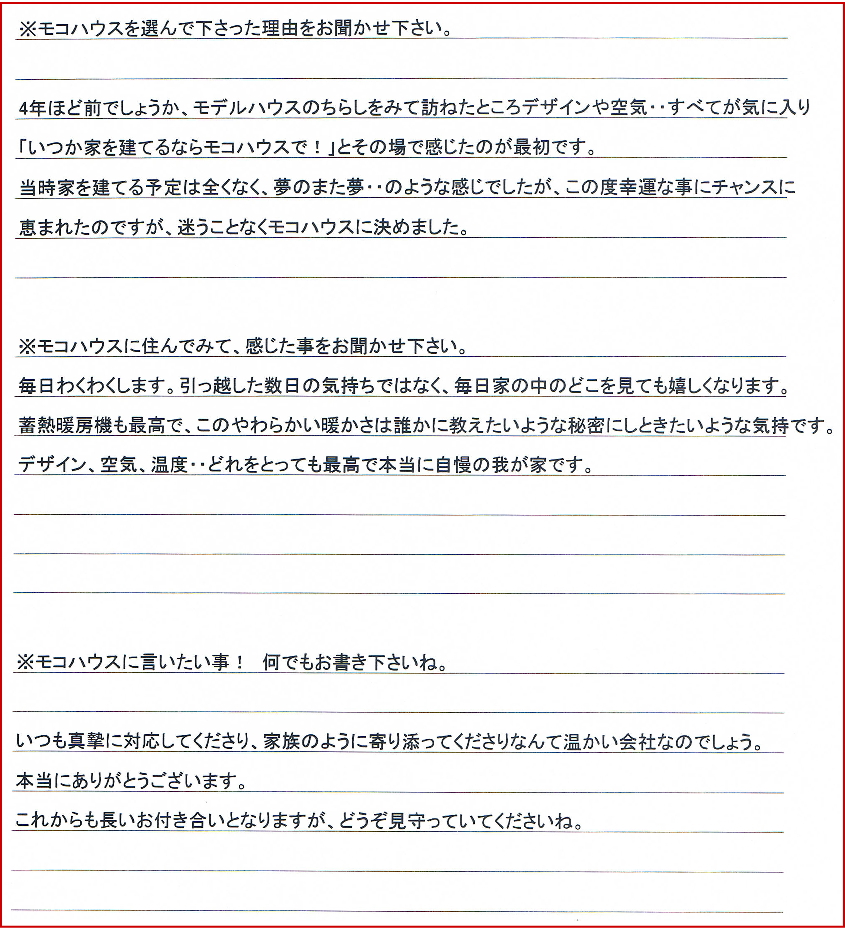 ※モコハウスを選んで下さった理由をお聞かせ下さい。
4年ほど前でしょうか、モデルハウスのちらしをみて訪ねたところデザインや空気‥すべてが気に入り
「いつか家を建てるならモコハウスで！」とその場で感じたのが最初です。
当時家を建てる予定は全くなく、夢のまた夢‥のような感じでしたが、この度幸運な事にチャンスに
恵まれたのですが、迷うことなくモコハウスに決めました。
※モコハウスに住んでみて、感じた事をお聞かせ下さい。
毎日わくわくします。引っ越した数日の気持ちではなく、毎日家の中のどこを見ても嬉しくなります。
蓄熱暖房機も最高で、このやわらかい暖かさは誰かに教えたいような秘密にしときたいような気持です。
デザイン、空気、温度‥どれをとっても最高で本当に自慢の我が家です。
※モコハウスに言いたい事！　何でもお書き下さいね。
いつも真摯に対応してくださり、家族のように寄り添ってくださりなんて温かい会社なのでしょう。
本当にありがとうございます。
これからも長いお付き合いとなりますが、どうぞ見守っていてくださいね。